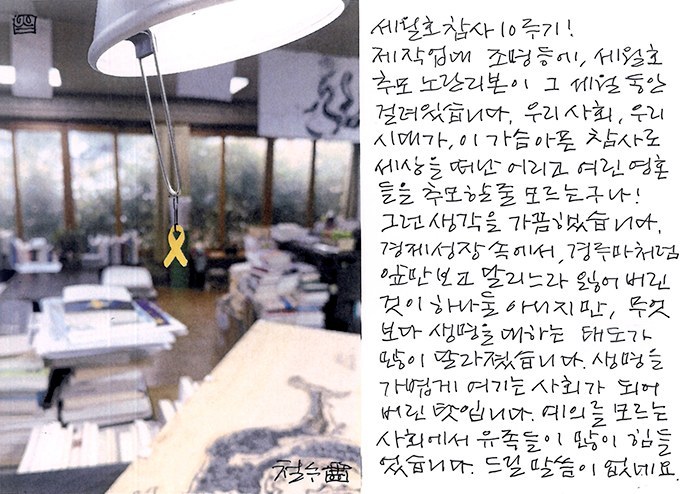 세월호 참사 10주기!
제 작업대 조명등에, 세월호
추모 노란리본이 그 세월 동안
걸려있습니다. 우리 사회, 우리
시대가, 이 가슴아픈 참사로
세상을 떠난 어리고 여린 영혼
들을 추모할줄 모르는구나!
그런 생각을 가끔 했습니다.
경제성장 속에서, 경주마처럼
앞만보고 달리느라 잃어 버린
것이 하나둘 아니지만, 무엇
보다 생명을 대하는 태도가
많이 달라졌습니다. 생명을
가볍게 여기는 사회가 되어
버린 탓입니다. 예의를 모르는
사회에서 유족들이 많이 힘들
었습니다. 드릴 말씀이 없네요.
철수